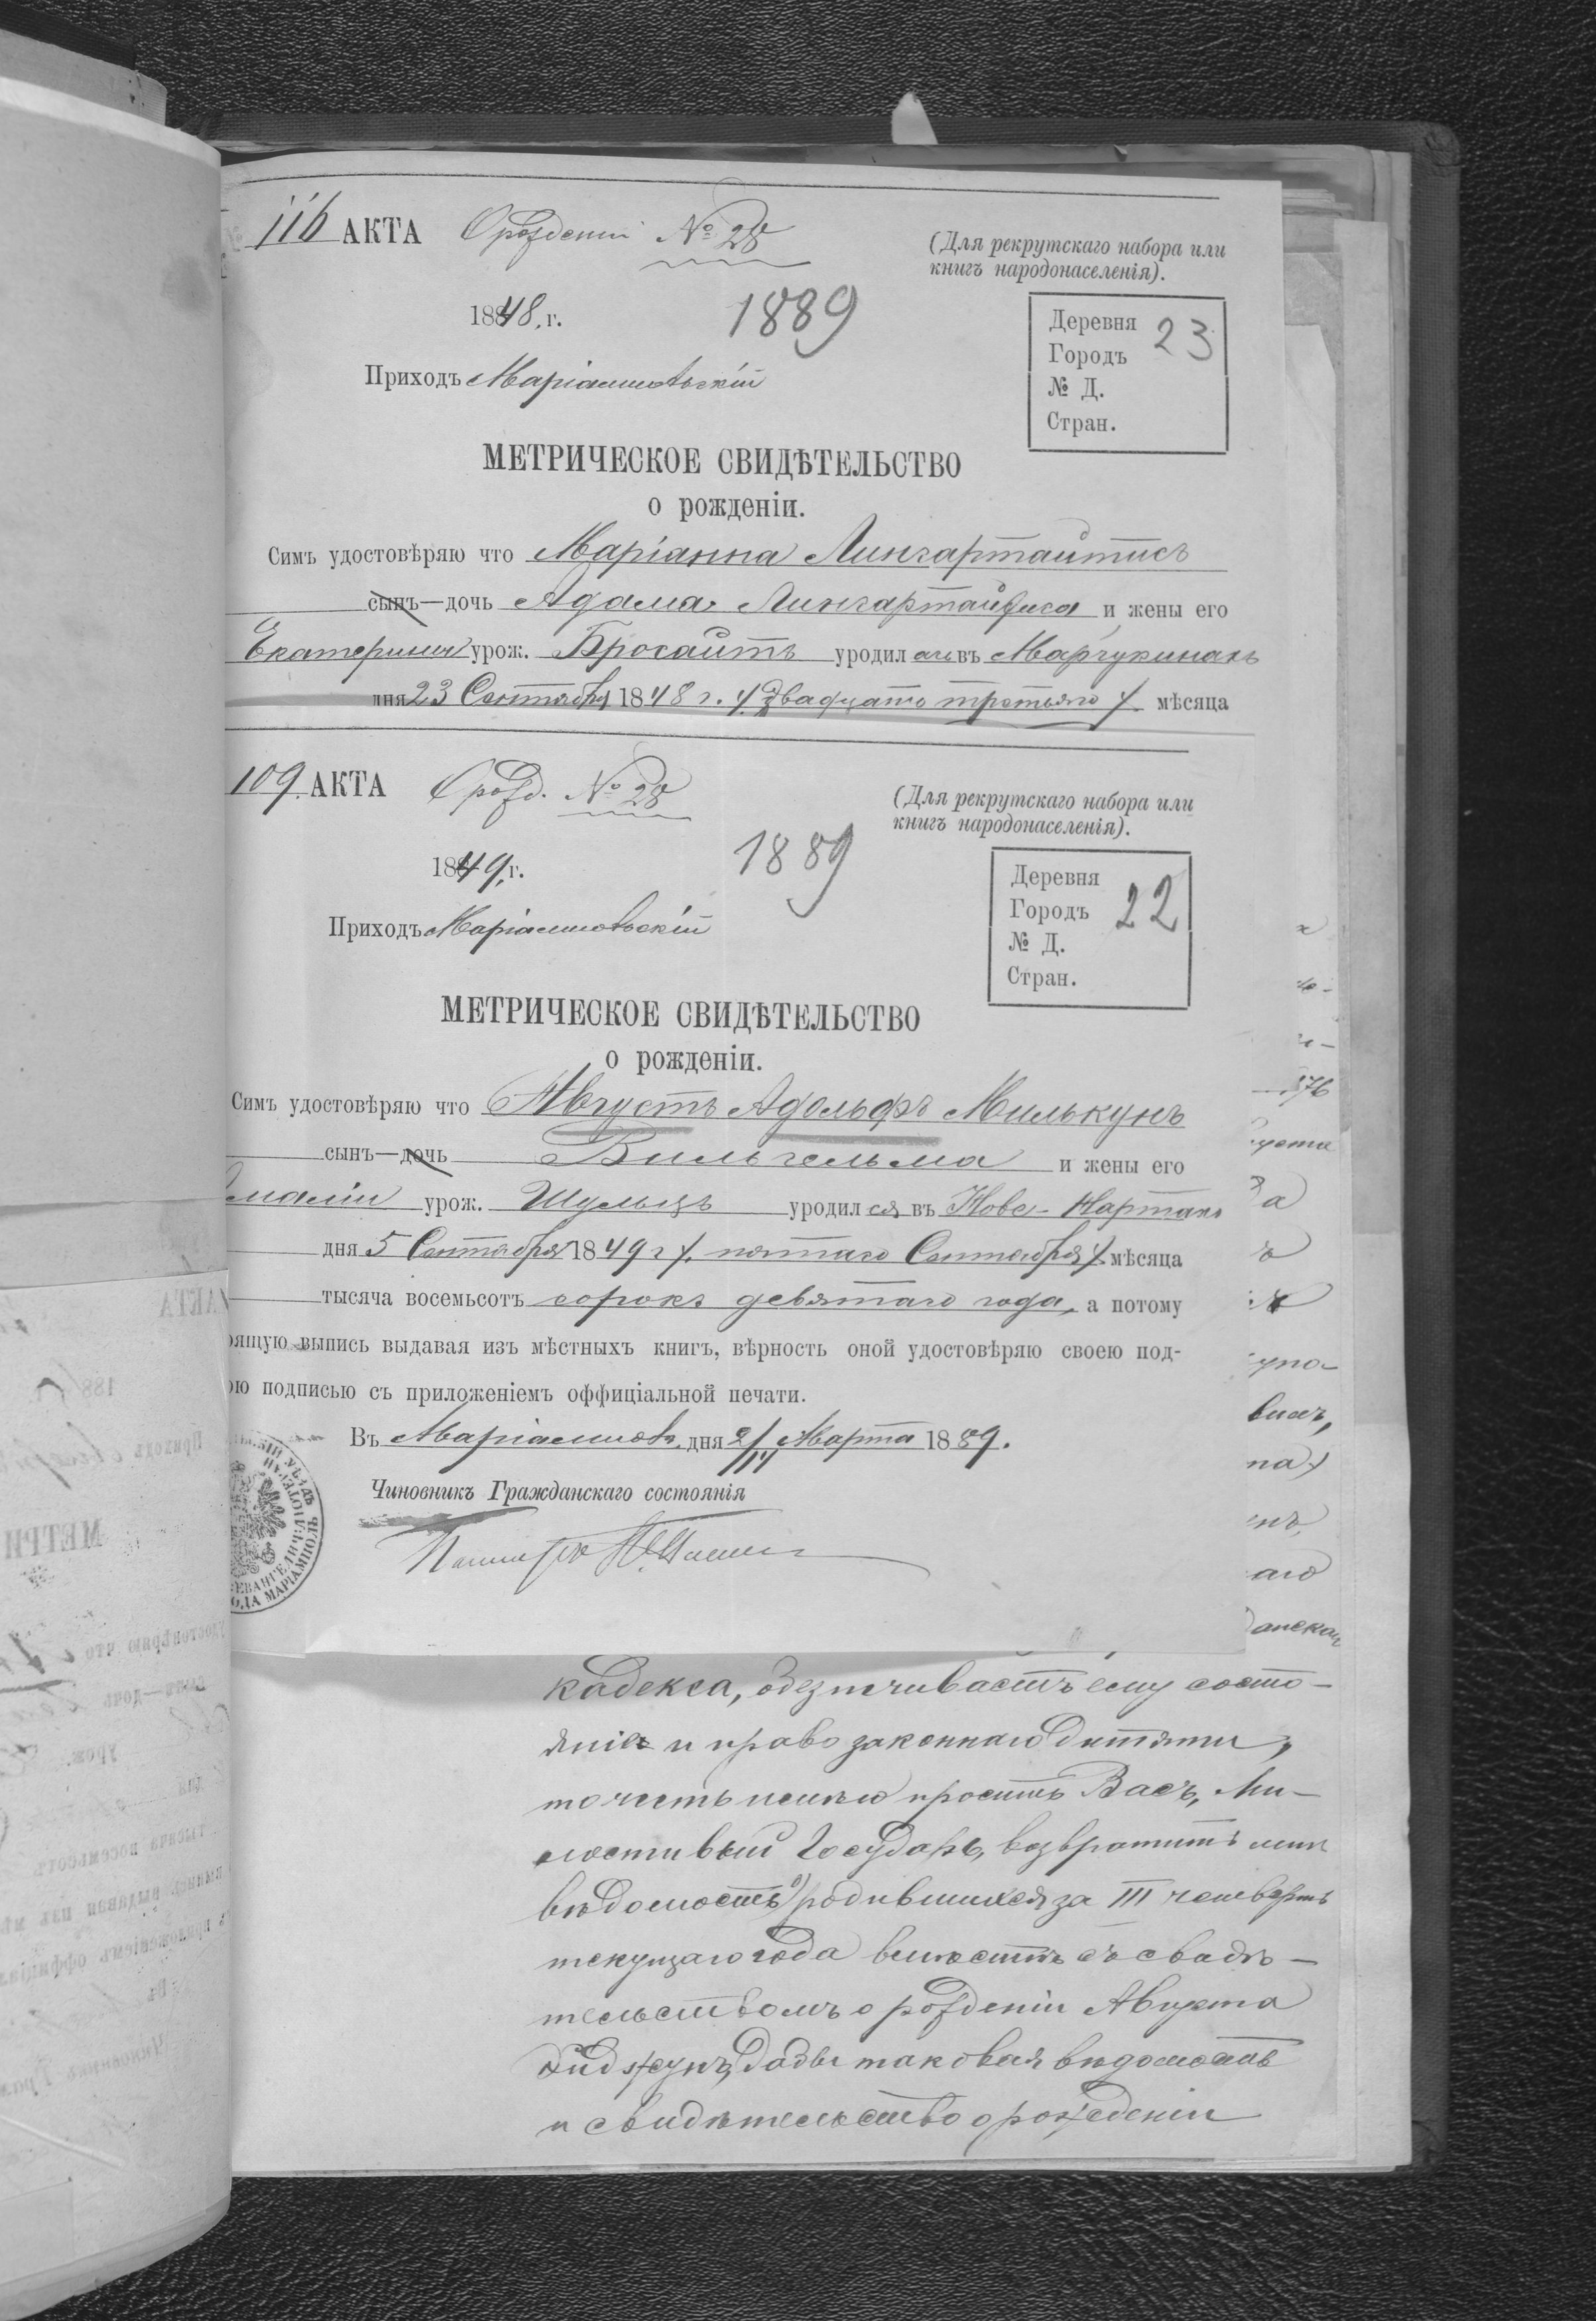 116 АКТА О рожденіи № 28
(Для рекрутскаго набора или
книгъ народонаселенія).
1848 г. 1889
Деревня 23
Городъ
№ Д.
Стран.
Приходъ Маріампольскій
МЕТРИЧЕСКОЕ СВИДѢТЕЛЬСТВО
о рожденіи.
Симъ удостовѣряю что Маріанна Лингартайтисъ
сынъ—дочь Адама Лингартайтиса и жены его
Екатерины урож. Бросайтъ уродилась въ
дня 23 Сентября 1848 г. /: двадцать третьяго /: мѣсяца
109 АКТА О рожд. № 28
(Для рекрутскаго набора или
книгъ народонаселенія).
1849 г. 1889
Деревня 22
Городъ
№ Д.
Стран.
Приходъ Маріампольскій
МЕТРИЧЕСКОЕ СВИДѢТЕЛЬСТВО
о рожденіи.
Симъ удостовѣряю что Августъ Адольфъ Милькунъ
сынъ—дочь Вильгельма и жены его
маліи урож. Шульцъ уродился въ Нове-
дня 5 Сентября 1849 г /: пятаго Сентября /: мѣсяца
тысяча восемьсотъ сорокъ девятаго года, а потому
оящую выпись выдавая изъ мѣстныхъ книгъ, вѣрность оной удостовѣряю своею под-
ою подписью съ приложеніемъ оффиціальной печати.
Въ Маріамполѣ, дня 2/14 Марта 1889.
Чиновникъ Гражданскаго состоянія
кодекса, обезпечиваетъ ему состо-
яніе и право законнаго дитяти,
то честь имѣю просить Васъ, Ми-
лостивый Государь, возвратить мнѣ
вѣдомость о родившихся за III четверть
текущаго года вмѣстѣ съ свидѣ-
тельствомъ о рожденіи Августа
дабы таковая вѣдомость
и свидѣтельство о рожденіи